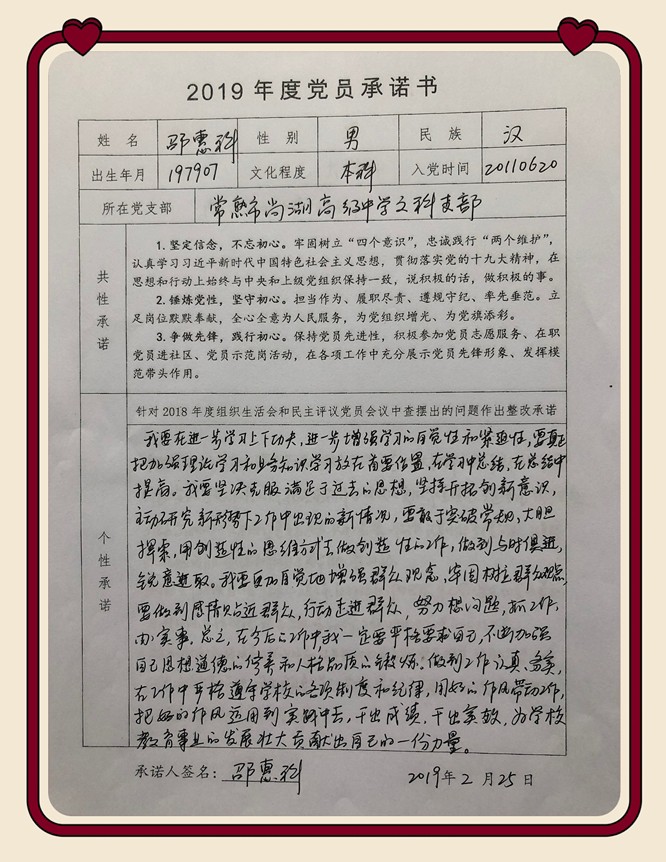 2019 年度党员承诺书
姓 名 邵惠科 性 别 男 民 族 汉
出生年月 197907 文化程度 本科 入党时间 20110620
所在党支部 常熟市尚湖高级中学文科支部
共性承诺
1. 坚定信念，不忘初心。牢固树立“四个意识”，忠诚践行“两个维护”，
认真学习习近平新时代中国特色社会主义思想，贯彻落实党的十九大精神，在
思想和行动上始终与中央和上级党组织保持一致，说积极的话，做积极的事。
2. 锤炼党性，坚守初心。担当作为、履职尽责、遵规守纪、率先垂范。立
足岗位默默奉献，全心全意为人民服务，为党组织增光、为党旗添彩。
3. 争做先锋，践行初心。保持党员先进性，积极参加党员志愿服务、在职
党员进社区、党员示范岗活动，在各项工作中充分展示党员先锋形象、发挥模
范带头作用。
个性承诺
针对 2018 年度组织生活会和民主评议党员会议中查摆出的问题作出整改承诺
我要在进一步学习上下功夫，进一步增强学习的自觉性和紧迫性，要真正
把加强理论学习和业务知识学习放在首要位置，在学习中总结，在总结中
提高。我要坚决克服满足于过去的思想，坚持开拓创新意识，
主动研究新形势下工作中出现的新情况，要敢于突破常规，大胆
探索，用创造性的思维方式去做创造性的工作，做到与时俱进，
锐意进取。我要更加自觉地增强群众观念，牢固树立群众观点，
要做到感情贴近群众，行动走进群众，努力想问题，抓工作，
办实事。总之，在今后的工作中，我一定要严格要求自己，不断加强
自己思想道德的修养和人格品质的锻炼。做到工作认真、务实，
在工作中严格遵守学校的各项制度和纪律，用好的作风带动工作，
把好的作风运用到实践中去，干出成绩，干出实效，为学校
教育事业的发展壮大贡献出自己的一份力量。
承诺人签名：邵惠科 2019年2月25日